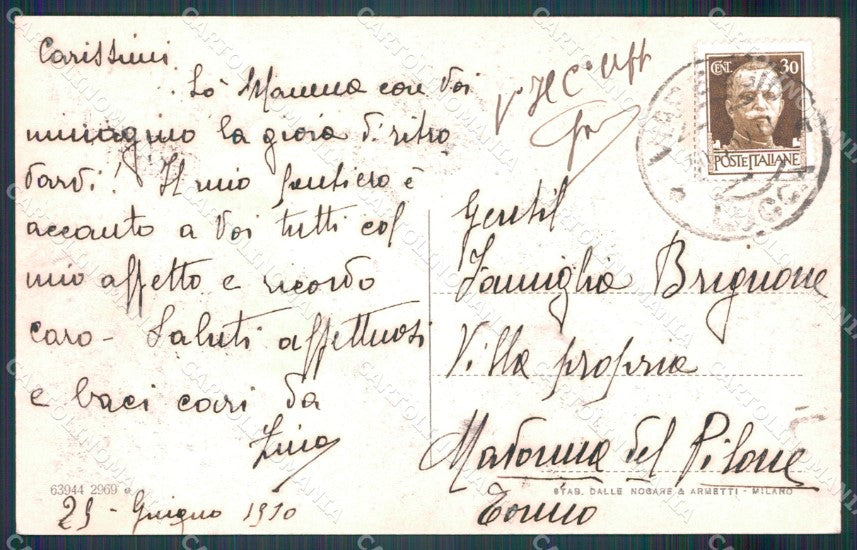 Carissimi
Là Mamma con Voi
immagino la gioia di ritro
varvi! Il mio pensiero è
accanto a Voi tutti col
mio affetto e ricordo
caro - Saluti affettuosi
e baci cari da
Zina
63944 2969
29 - Giugno 1930
CENT. 30
POSTE ITALIANE
Gentil
Famiglia Brignone
Villa propria
Madonna del Pilone
STAB. DALLE NOGARE & ARMETTI - MILANO
Torino
CARTOLINOMANIA